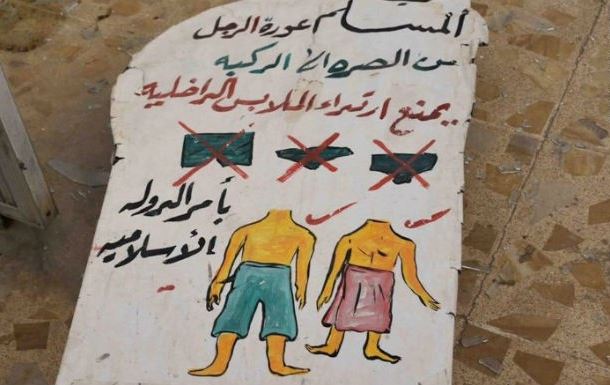 المسلم عورة الرجل
من الصره الا الركبه
يمنع ارتداء الملابس الداخلية
بأمر الدوله
الأسلاميه